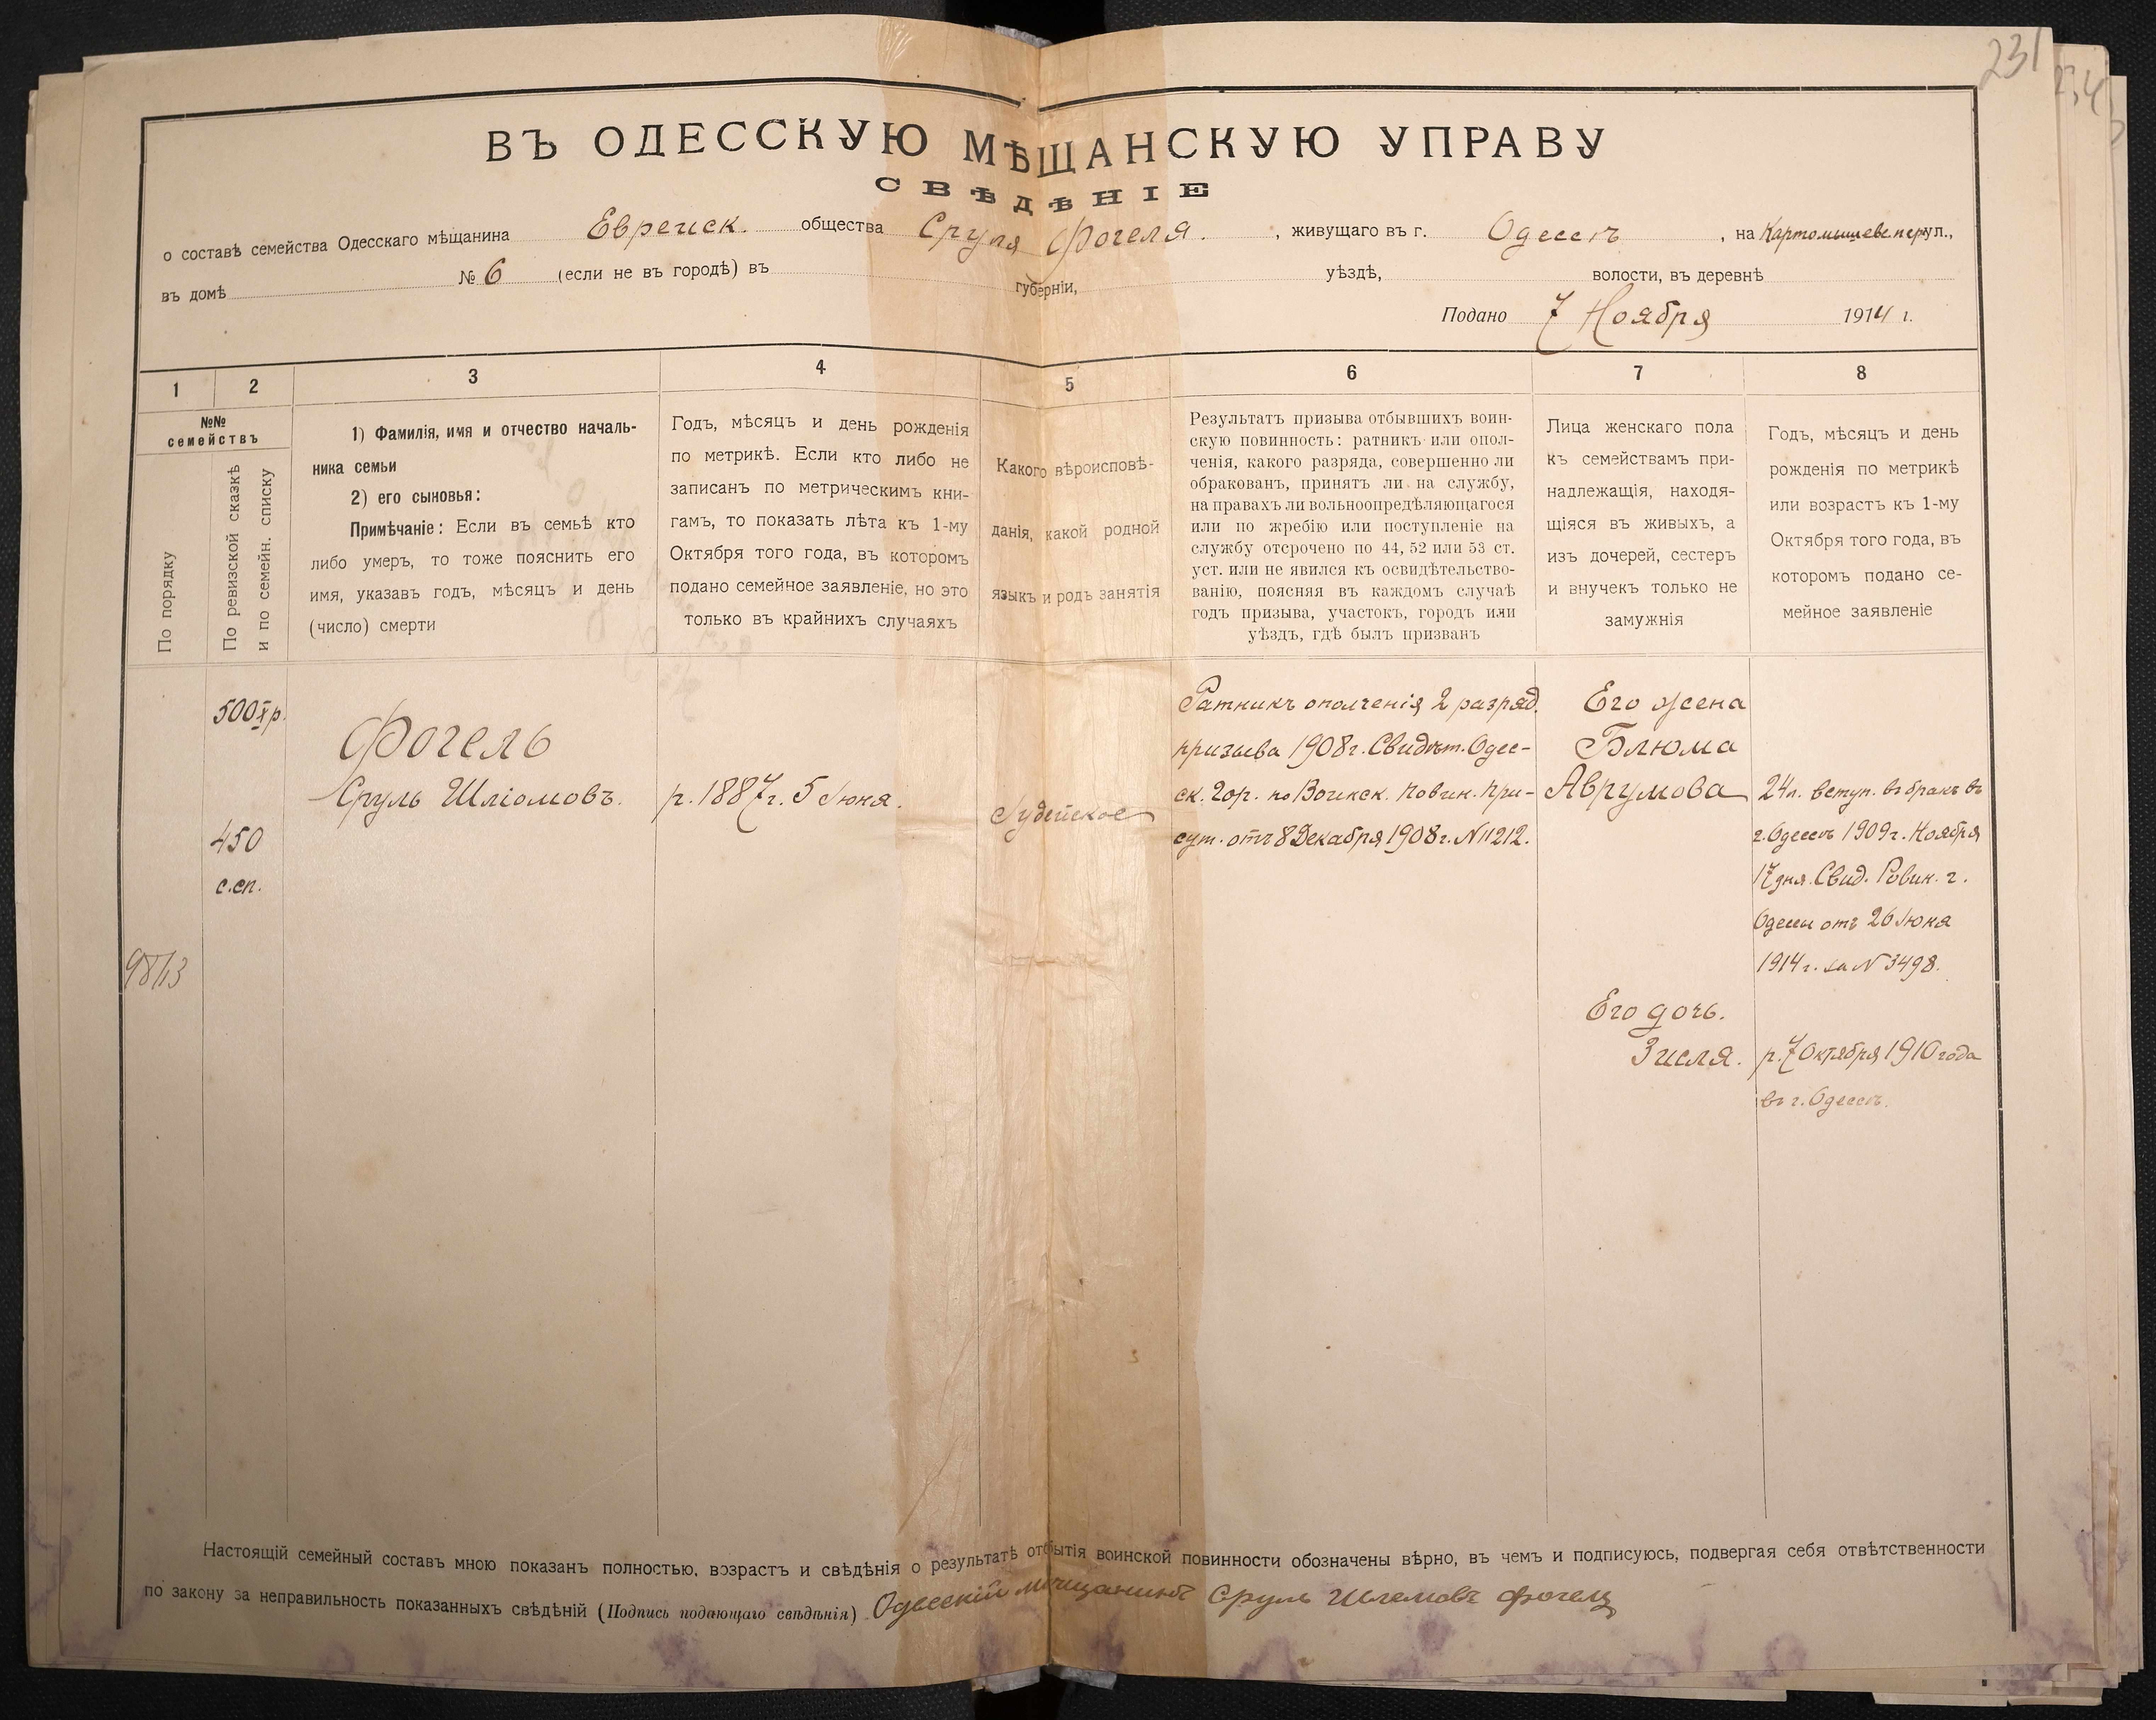 231
234
ВЪ ОДЕССКУЮ МѢЩАНСКУЮ УПРАВУ
СВѢДѢНІЕ
о составѣ семейства Одесскаго мѣщанина Еврейск. общества Сруля Фогеля. , живущаго въ г. Одессѣ , на Картомышевс пер ул.,
въ домѣ № 6 (если не въ городѣ) въ губерніи, уѣздѣ, волости, въ деревнѣ
Подано 7 Ноября 1914 г.
1
2
3
4
5
6
7
8
№№
семействъ
По порядку
По ревизской сказкѣ
и по семейн. списку
1) Фамилія, имя и отчество началь-
ника семьи
2) его сыновья:
Примѣчаніе: Если въ семьѣ кто
либо умеръ, то тоже пояснить его
имя, указавъ годъ, мѣсяцъ и день
(число) смерти
Годъ, мѣсяцъ и день рожденія
по метрикѣ. Если кто либо не
записанъ по метрическимъ кни-
гамъ, то показать лѣта къ 1-му
Октября того года, въ которомъ
подано семейное заявленіе, но это
только въ крайнихъ случаяхъ
Какого вѣроисповѣ-
данія, какой родной
языкъ и родъ занятія
Результатъ призыва отбывшихъ воин-
скую повинность: ратникъ или опол-
ченія, какого разряда, совершенно ли
обракованъ, принятъ ли на службу,
на правахъ ли вольноопредѣляющагося
или по жребію или поступленіе на
службу отсрочено по 44, 52 или 53 ст.
уст. или не явился къ освидѣтельство-
ванію, поясняя въ каждомъ случаѣ
годъ призыва, участокъ, городъ или
уѣздъ, гдѣ былъ призванъ
Лица женскаго пола
къ семействамъ при-
надлежащія, находя-
щіяся въ живыхъ, а
изъ дочерей, сестеръ
и внучекъ только не
замужнія
Годъ, мѣсяцъ и день
рожденія по метрикѣ
или возрастъ къ 1-му
Октября того года, въ
которомъ подано се-
мейное заявленіе
500 X р.
450
с.сп.
98/13
Фогель
Сруль Шліомовъ.
р. 1887 г. 5 Іюня.
Іудейское
Ратникъ ополченія 2 разряд.
призыва 1908 г. Свидѣт. Одес-
ск. Гор. по Воинск. повин. При-
сут. отъ 8 Декабря 1908 г. N 11212.
Его жена
Блюма
Аврумова
24 л. вступ. въ бракъ въ
г. Одессѣ 1909 г. Ноября
17 дня. Свид. Равин. г.
Одессы отъ 26 Іюня
1914 г. за N 3498.
Его дочь.
Зисля.
р. 7 Октября 1910 года
въ г. Одессѣ.
Настоящій семейный составъ мною показанъ полностью, возрастъ и свѣдѣнія о результатѣ отбытія воинской повинности обозначены вѣрно, въ чемъ и подписуюсь, подвергая себя отвѣтственности
по закону за неправильность показанныхъ свѣдѣній (Подпись подающаго свѣдѣнія) Одесскій мѣщанинъ Сруль Шлемовъ Фогель